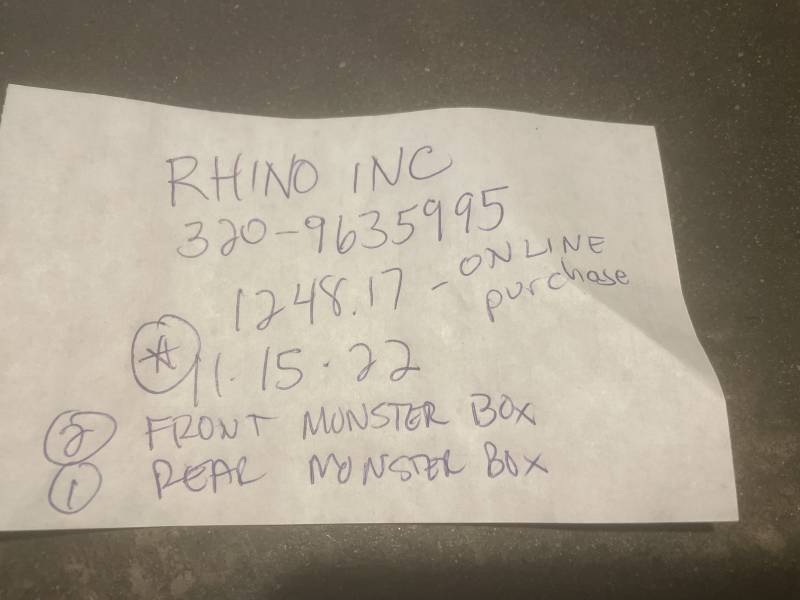 RHINO INC
320-9635995
1248.17 - ONLINE purchase
* 11.15.22
2 FRONT MONSTER BOX
1 REAR MONSTER BOX